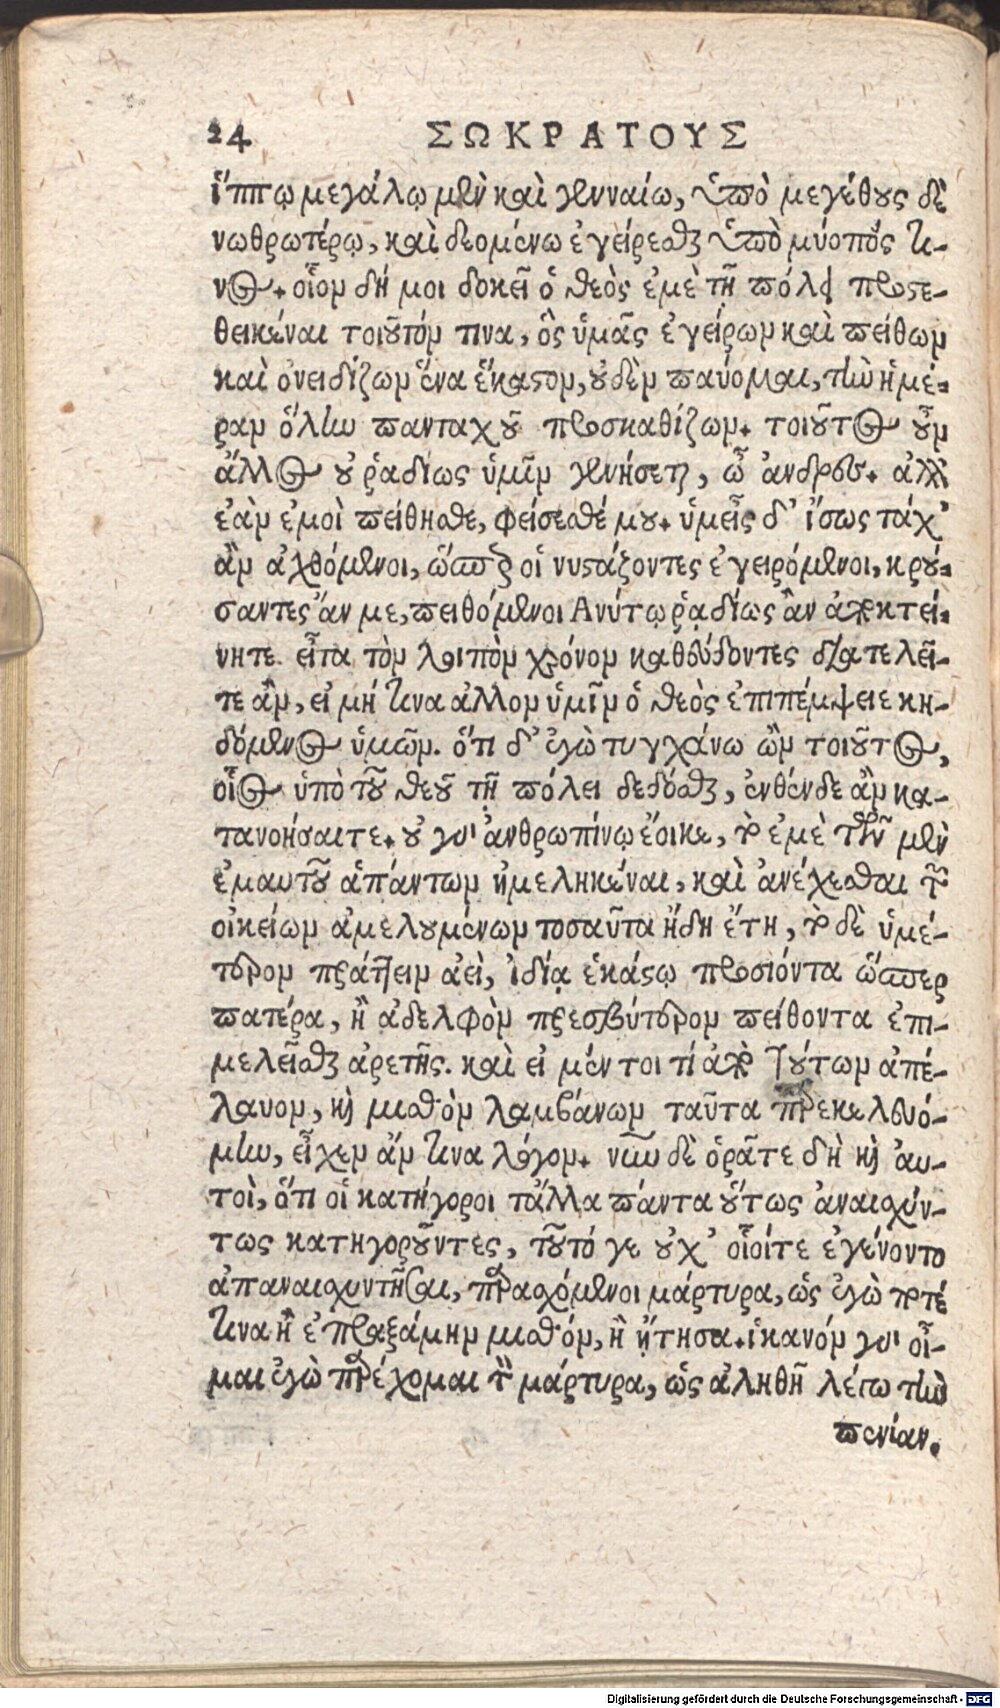 24 ΣΩΚΡΑΤΟΥΣ
ἵππῳ μεγάλῳ μὲν καὶ γενναίω, ὑπὸ μεγέθους δὲ
νωθρωτέρῳ, καὶ δεομένω ἐγείρεσθαι ὑπὸ μύοπός τι-
νος. οἷον δή μοι δοκεῖ ὁ θεὸς ἐμὲ τῇ πόλει προστε-
θεικέναι τοιοῦτόν τινα, ὃς ὑμᾶς ἐγείρων καὶ πείθων
καὶ ὀνειδίζων ἕνα ἕκαστον, οὐδὲν παύομαι, τὴν ἡμέ-
ραν ὅλην πανταχοῦ προσκαθίζων. τοιοῦτος οὖν
ἄλλος οὐ ῥαδίως ὑμῖν γενήσεται, ὦ ἄνδρες. ἀλλ'
ἐὰν ἐμοὶ πείθησθε, φείσεσθέ μου. ὑμεῖς δ' ἴσως τάχ'
ἂν ἀχθόμενοι, ὥσπερ οἱ νυστάζοντες ἐγειρόμενοι, κρού-
σαντες ἄν με, πειθόμενοι Ἀνύτῳ ῥᾳδίως ἂν ἀποκτεί-
νητε. εἶτα τὸν λοιπὸν χρόνον καθεύδοντες διατελεῖ-
τε ἂν, εἰ μή τινα ἀλλον ὑμῖν ὁ θεὸς ἐπιπέμψειε κη-
δόμενος ὑμῶν. ὅτι δ' ἐγὼ τυγχάνω ὢν τοιοῦτος,
οἷος ὑπὸ τοῦ θεοῦ τῇ πόλει δεδόσθαι, ἐνθένδε ἂν κα-
τανοήσαιτε. οὐ γὰρ ἀνθρωπίνῳ ἔοικε, τὸ ἐμὲ τῶν μὲν
ἐμαυτοῦ ἁπάντων ἠμεληκέναι, καὶ ἀνέχεσθαι τῶν
οἰκείων ἀμελουμένων τοσαῦτα ἤδη ἔτη, τὸ δὲ ὑμέ-
τερον πράττειν ἀεὶ, ἰδίᾳ ἑκάστῳ προσιόντα ὥσπερ
πατέρα, ἢ ἀδελφὸν πρεσβύτερον πείθοντα ἐπι-
μελεῖσθαι ἀρετῆς. καὶ εἰ μέν τοι τί ἀπὸ τούτων ἀπέ-
λαυον, καὶ μισθὸν λαμβάνων ταῦτα παρεκελευό-
μην, εἶχεν ἄν τινα λόγον. νῦν δὲ ὁρᾶτε δὴ καὶ ἀυ-
τοὶ, ὅτι οἱ κατήγοροι τἄλλα πάντα οὕτως ἀναισχύν-
τως κατηγοροῦντες, τοῦτό γε οὐχ' οἷοίτε ἐγένοντο
ἀπαναισχυντῆσαι, παρασχόμενοι μάρτυρα, ὡς ἐγὼ ποτέ
τινα ἢ ἐπραξάμην μισθόν, ἢ ᾔτησα. ἱκανόν γὰρ οἶ-
μαι ἐγὼ παρέχομαι τὸν μάρτυρα, ὡς ἀληθῆ λέγω τὴν
πενίαν.
Digitalisierung gefördert durch die Deutsche Forschungsgemeinschaft - DFG